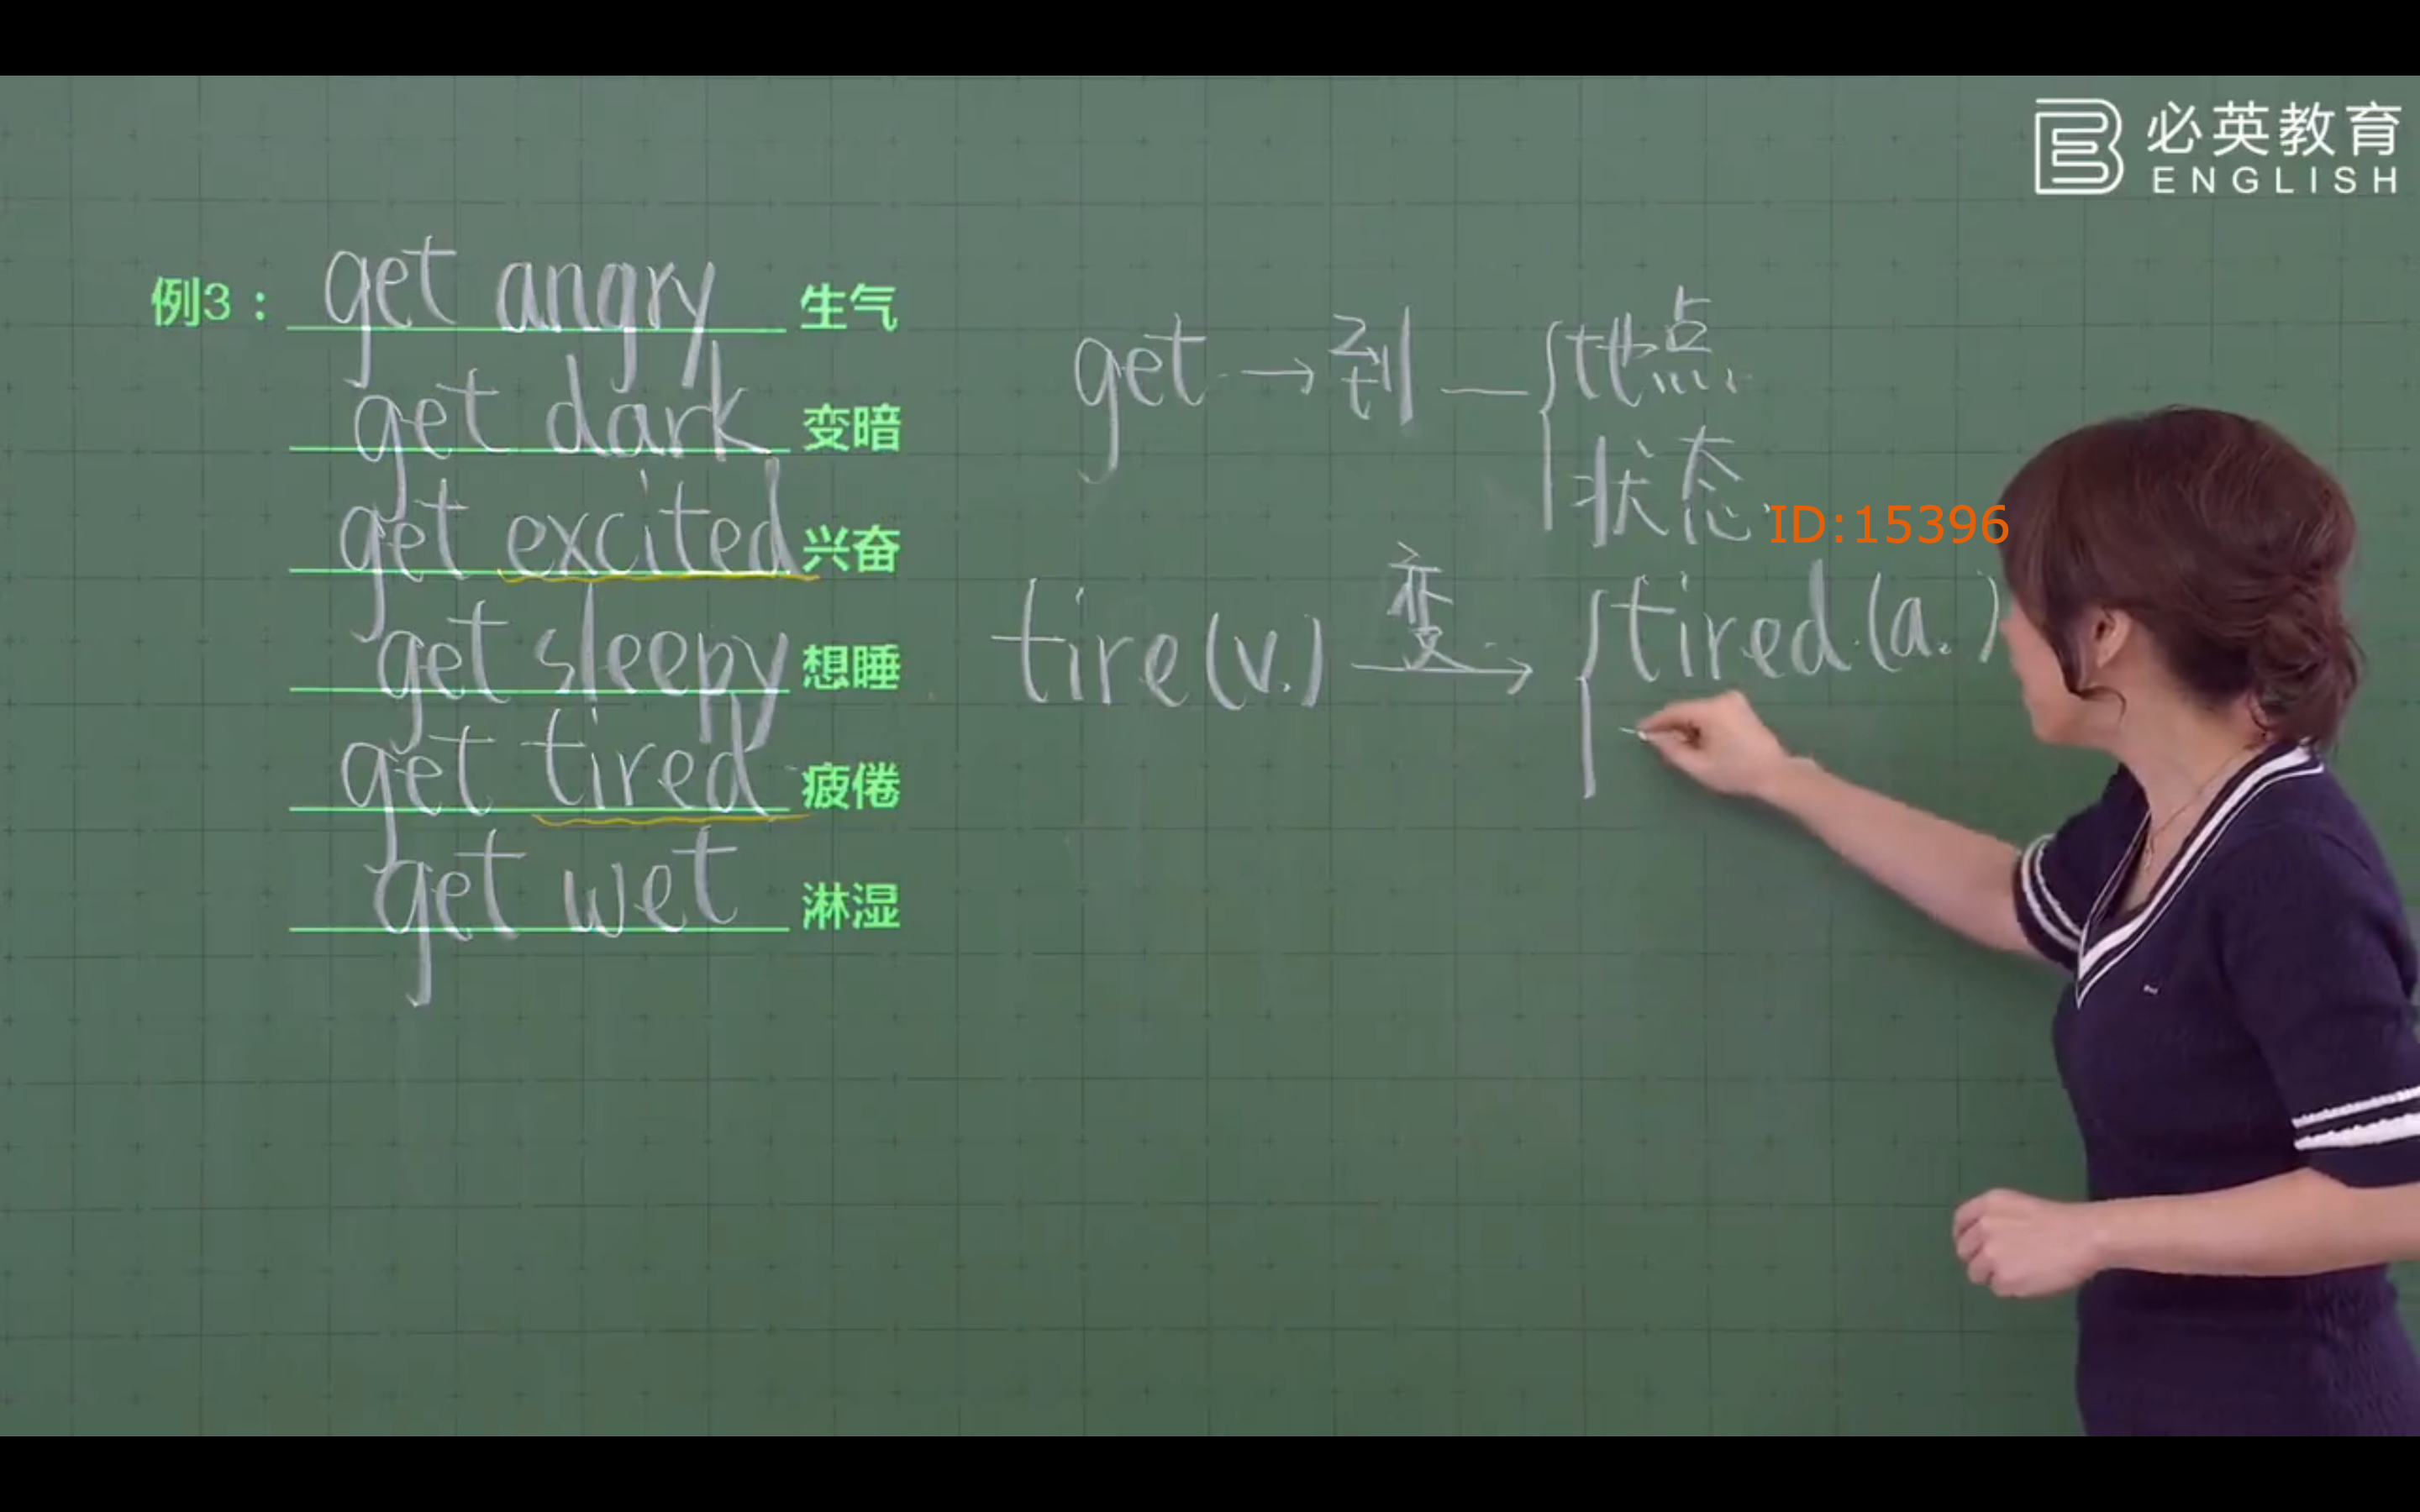 必英教育
ENGLISH
例3： get angry 生气
get dark 变暗
get excited 兴奋
get sleepy 想睡
get tired 疲倦
get wet 淋湿
get → 到 — { 地点
状态
ID:15396
tire(v.) 变 → { tired.(a.)